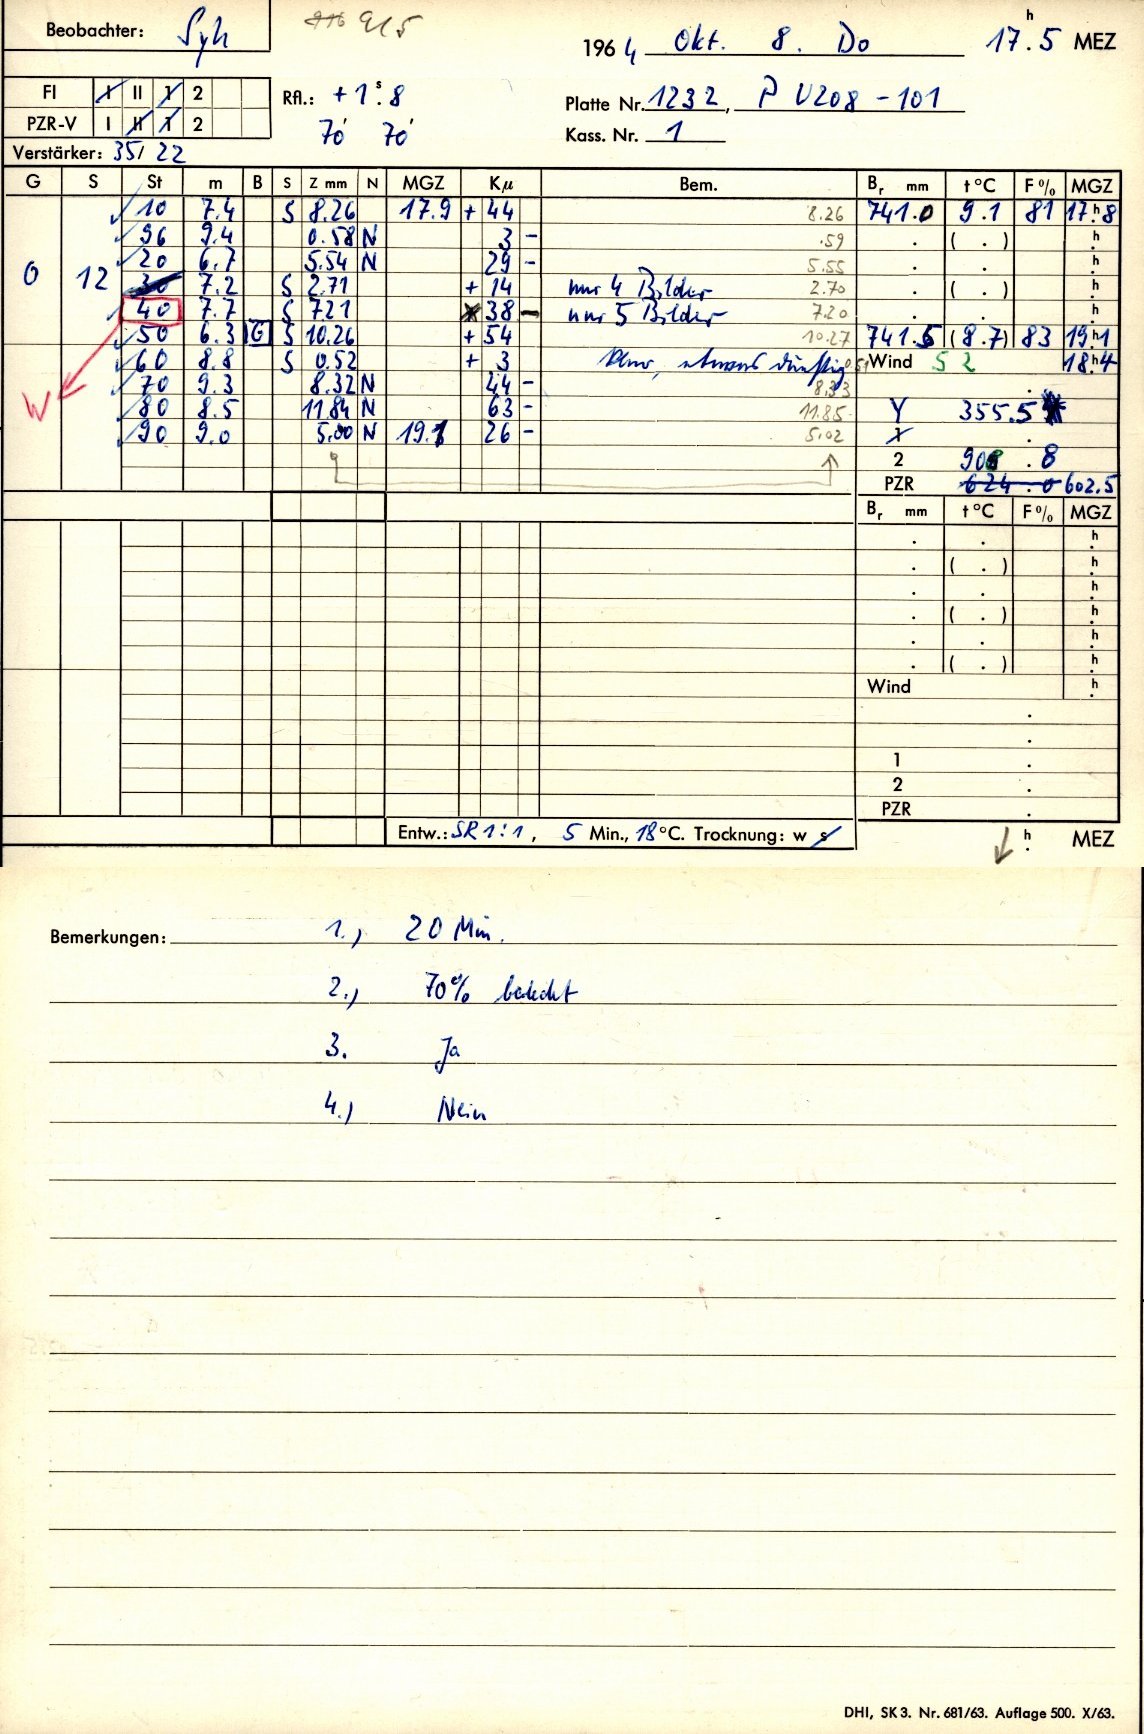 Beobachter: Syh 916 915
1964 Okt. 8. Do 17.5 h MEZ
FI I II 1 2
PZR-V I II 1 2
Rfl.: +1.8 s
70' 70'
Platte Nr. 1232, P U208-101
Kass. Nr. 1
Verstärker: 35/ 22
G S St m B S Z mm N MGZ Kμ Bem. Br mm t°C F% MGZ
10 7.4 S 8.26 17.9 + 44 8.26 741.0 9.1 81 17.8 h
96 9.4 0.58 N 3 - .59 . ( . ) h
20 6.7 5.54 N 29 - 5.55 . . h
O 12 30 7.2 S 2.71 + 14 nur 4 Bilder 2.70 . ( . ) h
40 7.7 S 7.21 38 - nur 5 Bilder 7.20 . . h
50 6.3 G S 10.26 + 54 10.27 741.5 (8.7) 83 19.1 h
60 8.8 S 0.52 + 3 klar, etwas dunstig 0.51 Wind S 2 18.4 h
W 70 9.3 8.32 N 44 - 8.33
80 8.5 11.84 N 63 - 11.85 Y 355.5
90 9.0 5.00 N 19.1 26 - 5.02 1 .
2 908.8
PZR 624.0 602.5
Br mm t°C F% MGZ
. . h
. ( . ) h
. . h
. ( . ) h
. . h
. ( . ) h
Wind h
.
.
1 .
2 .
PZR .
Entw.: SR 1:1, 5 Min., 18°C. Trocknung: w s
h MEZ
Bemerkungen: 1.) 20 Min.
2.) 70% bedeckt
3. Ja
4.) Nein
DHI, SK 3. Nr. 681/63. Auflage 500. X/63.